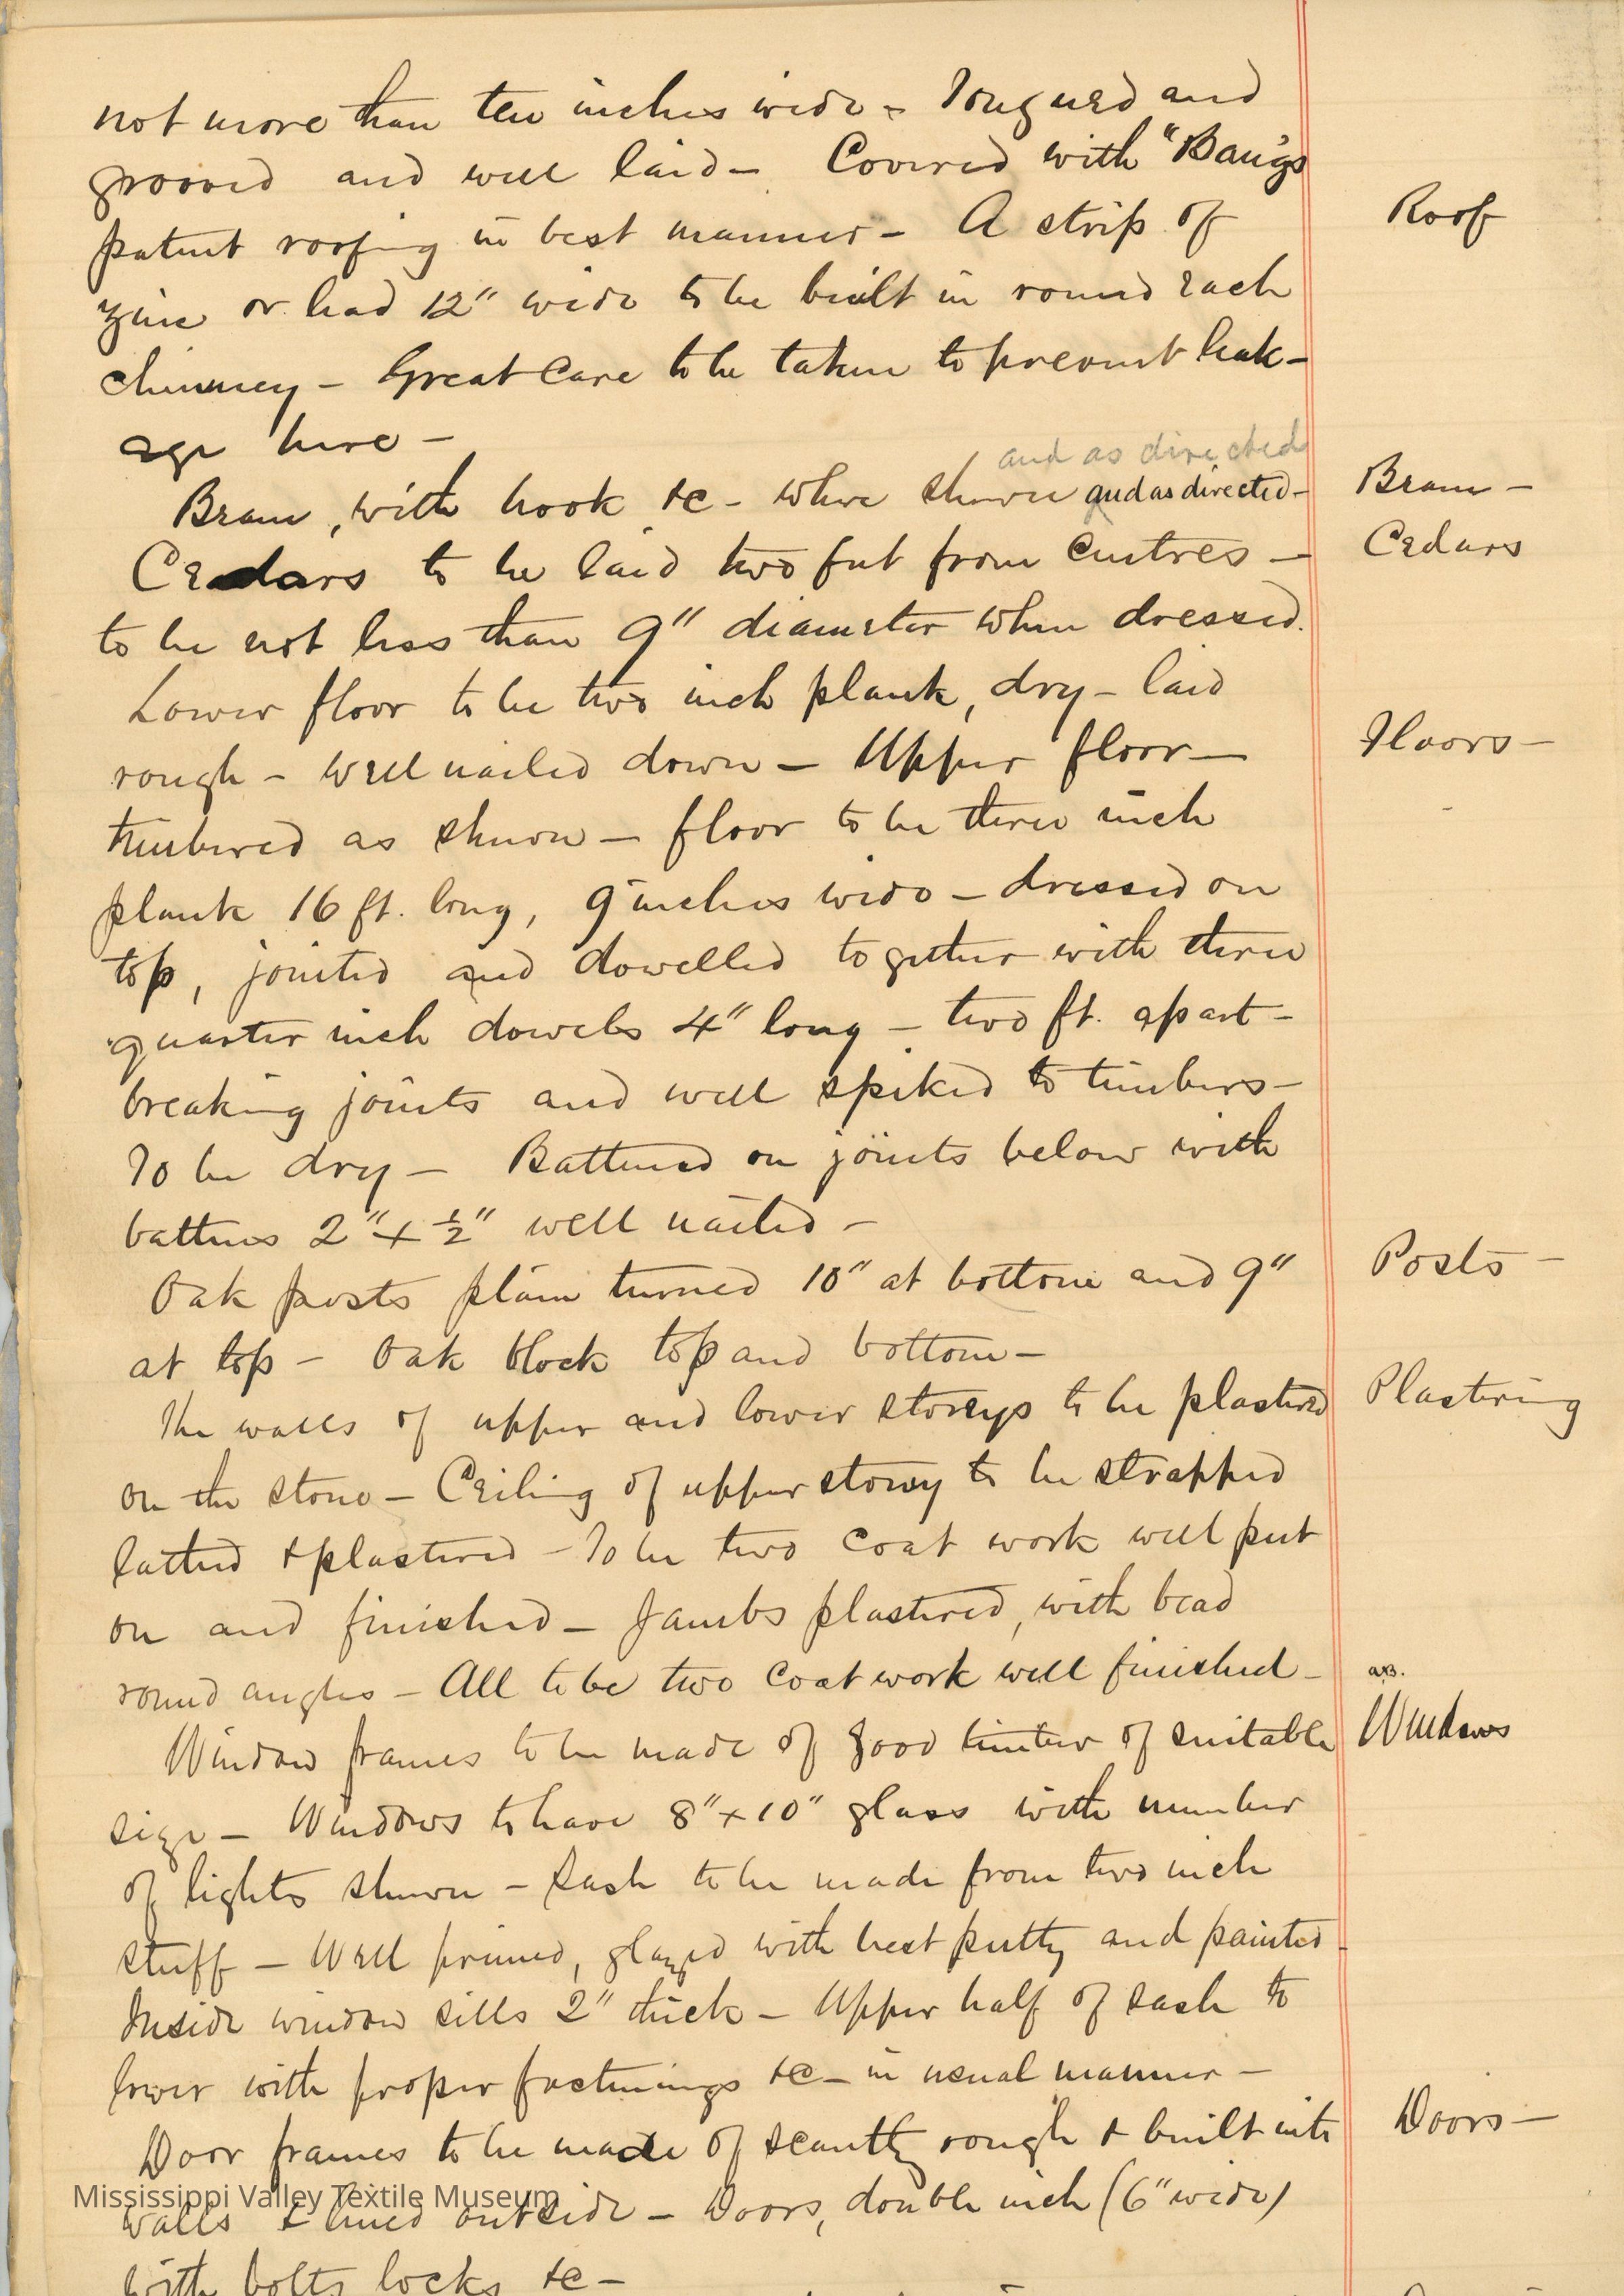 not more than ten inches wide - Tongued and
grooved and well laid - Covered with "Bangs
patent roofing in best manner - A strip of
Roof
zinc or lead 12" wide to be built in round each
chimney - Great care to be taken to prevent leak-
age here -
and as directed
Beam, with hook &c - where shown and as directed -
Beam -
Cedars to be laid two feet from centres -
Cedars
to be not less than 9" diameter when dressed.
Lower floor to be two inch plank, dry - laid
rough - well nailed down - Upper floor -
Floors -
timbered as shown - floor to be three inch
plank 16 ft. long, 9 inches wide - dressed on
top, jointed and dowelled together with three
quarter inch dowels 4" long - two ft. apart -
breaking joints and well spiked to timbers -
To be dry - Battened on joints below with
battens 2" x ½" well nailed -
Oak posts plain turned 10" at bottom and 9"
Posts -
at top - Oak block top and bottom -
The walls of upper and lower storeys to be plastered
Plastering
on the stone - Ceiling of upper storey to be strapped
lathed & plastered - To be two coat work well put
on and finished - Jambs plastered, with bead
round angles - All to be two coat work well finished -
Window frames to be made of good timber of suitable
Windows
size - Windows to have 8" x 10" glass with number
of lights shown - Sash to be made from two inch
stuff - Well primed, glazed with best putty and painted
Inside window sills 2" thick - Upper half of sash to
lower with proper fastenings &c - in usual manner -
Door frames to be made of scantlg rough & built into
Doors -
Mississippi Valley Textile Museum
walls & lined outside - Doors, double inch (6" wide)
with bolts locks &c -